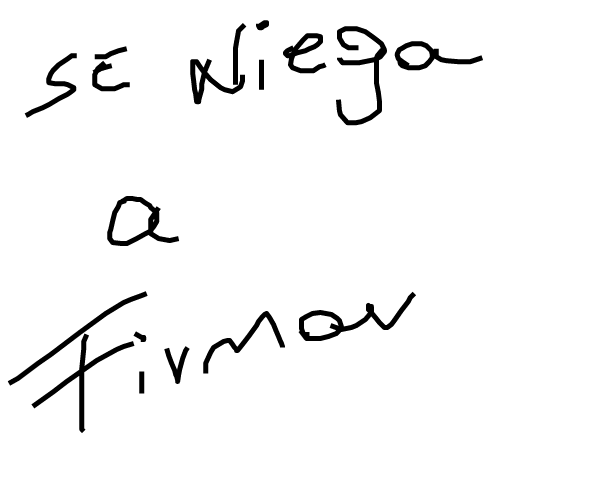 SE Niega
a
Firmar